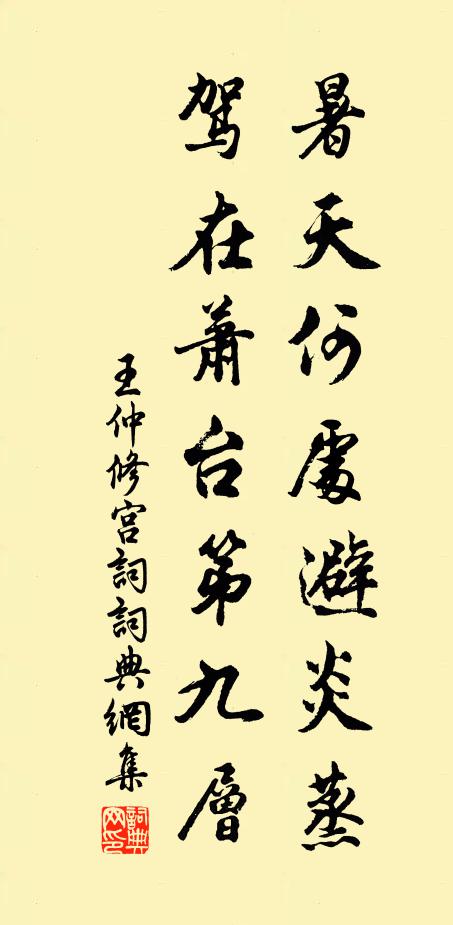 暑天何處避炎蒸
駕在蕭台第九層
王仲修宮詞詞典網集
詞典网印